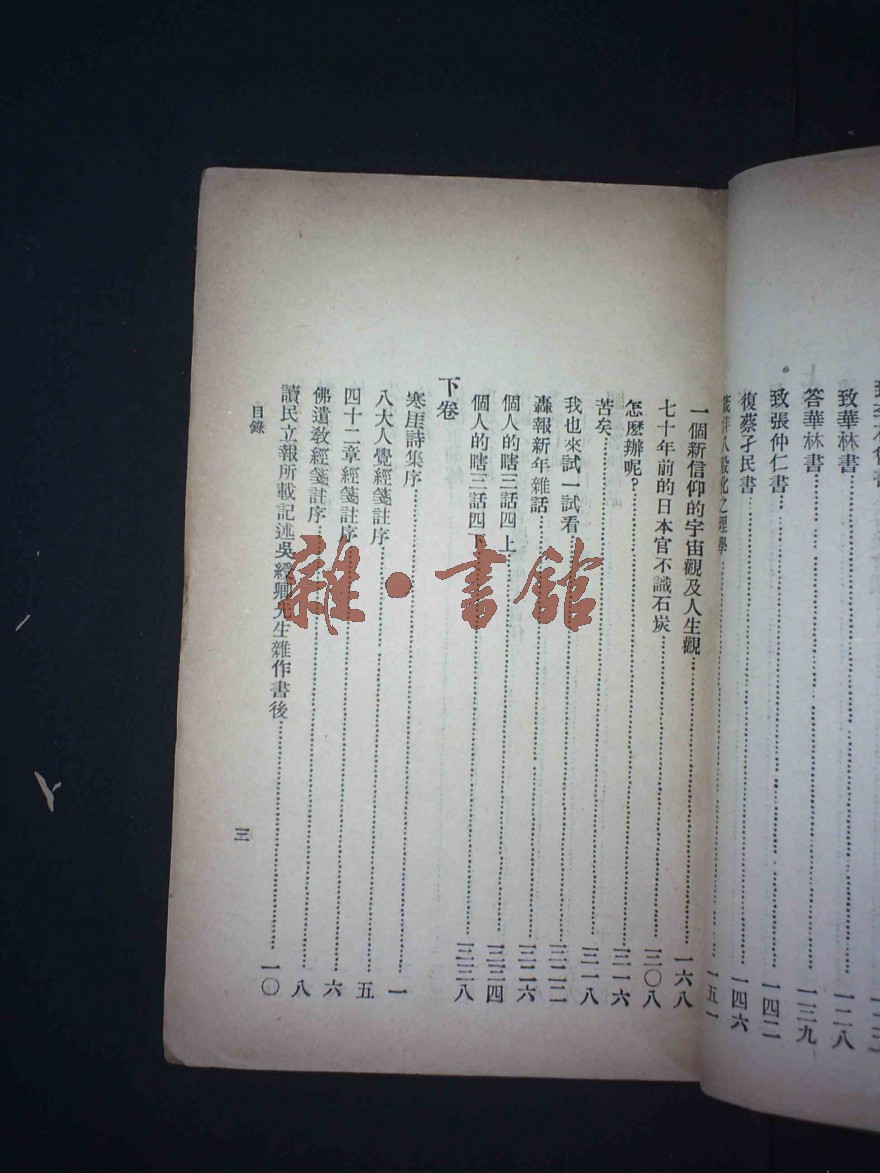 致華林書 一二八
答華林書 一三九
致張仲仁書 一四二
復蔡孑民書 一四六
箴洋八股化之理學 一五一
一個新信仰的宇宙觀及人生觀 一六八
七十年前的日本官不識石炭 三〇八
怎麼辦呢? 三一六
苦矣 三一八
我也來試一試看 三二二
轟報新年雜話 三二六
個人的瞎三話四上 三三四
個人的瞎三話四下 三三八
下卷
寒厓詩集序 一
八大人覺經箋註序 五
四十二章經箋註序 六
佛遺敎經箋註序 八
讀民立報所載記述吳綬卿先生雜作書後 一〇
目錄
三
雜·書館